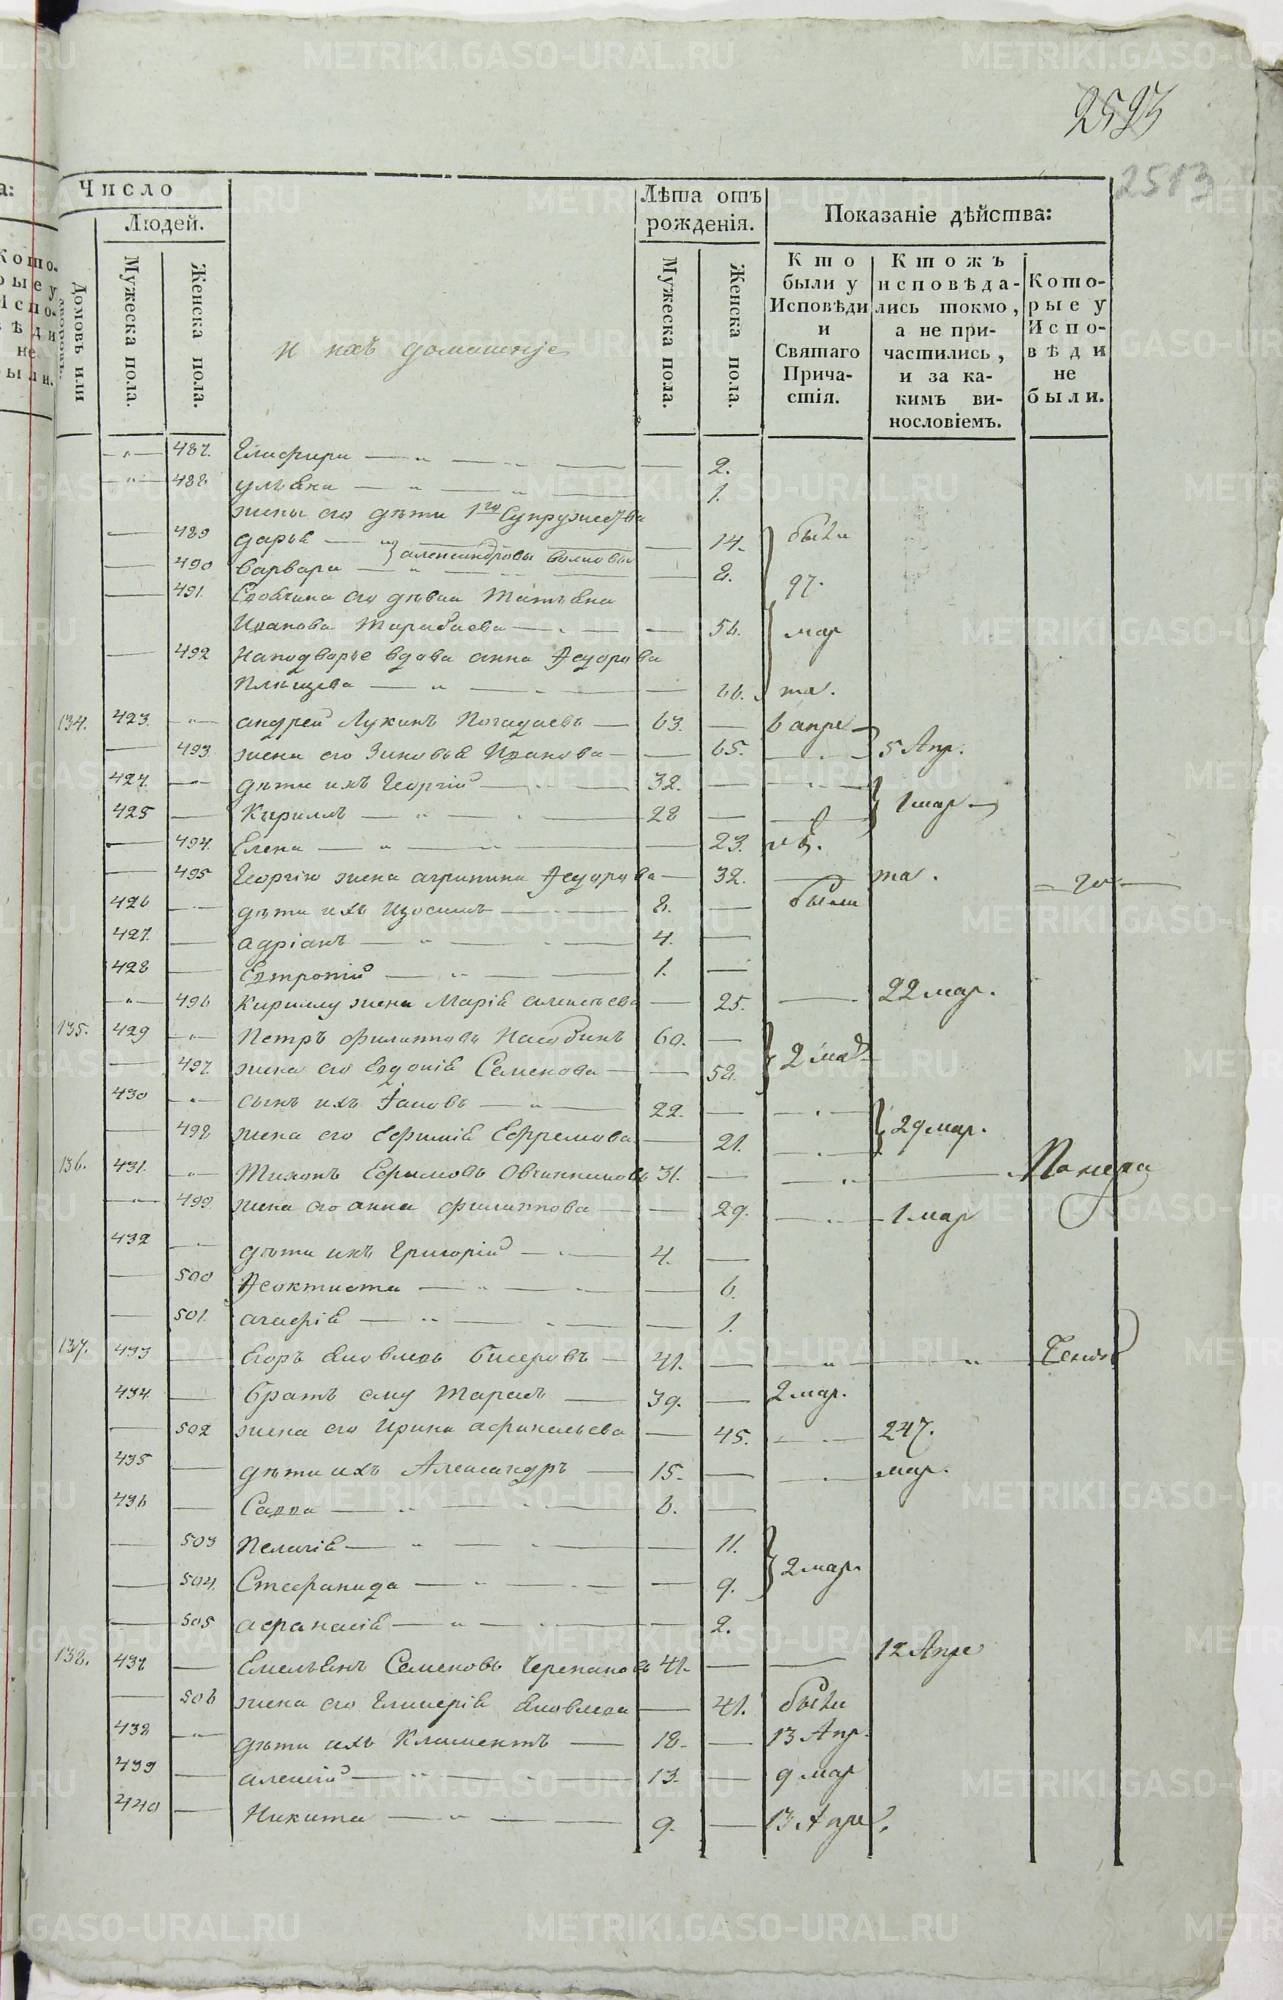 2523
2513
Число
Людей.
Домовъ или
Мужеска пола.
Женска пола.
и ихъ домашніе
Лѣта отъ рожденія.
Мужеска пола.
Женска пола.
Показаніе дѣйства:
Кто были у Исповѣди и Святаго Причастія.
Ктожъ исповѣдались токмо, а не причастились, и за какимъ винословіемъ.
Которые у Исповѣди не были.
487. Глафира — 2.
488 ульяна — 1.
жены его дѣти 1го супружества
489 дарья — 14. были
александровы
490 варвара — 8.
27.
491. его дѣвка Татьяна
Иванова — 56. мар
492 Наподворье вдова анна Ѳедорова
— 66. та.
134. 423. андрей Лукинъ Погадаевъ — 63. — 6 апре
493 жена его Зиновья Иванова — 65. 5 Апр.
424. дѣти ихъ Георгій — 32. —
425 Кириллъ — 28 — 1 мар
494. Елена — 23.
495 Георгію жена агрипина Ѳедорова — 32. та.
426 дѣти ихъ Изосимъ — 8. — были
427. адріанъ — 4. —
428 Евтропій — 1. —
496 Кириллу жена Марія алексѣева — 25. 22 мар.
135. 429 Петръ филипповъ Насобинъ 60. —
2 мар
497. жена его Евдокія Семенова — 58.
430 сынъ ихъ Іаковъ — 22. —
29 мар.
498 жена его Ефимія Ефремова — 21.
136. 431. Тихонъ Ефимовъ Овчинниковъ 31. —
499. жена его анна филиппова — 29. 1 мар
432 дѣти ихъ Григорій — 4. —
500 Ѳеоктиста — 6.
501. агафія — 1.
137. 433 Егоръ Яковлевъ Бисеровъ — 41. —
434. братъ ему Тарасъ — 39. — 2 мар.
502 жена его Ирина афанасьева — 45. 247.
435 дѣти ихъ Александръ — 15. — мар.
436 Савва — 6. —
503 Пелагія — 11.
2 мар.
504. Стефанида — 9.
505 афанасія — 2.
138. 437 Емельянъ Семеновъ Черепановъ 41. — 12 Апре
506 жена его Гликерія Яковлева — 41. были
438 дѣти ихъ Климентъ — 18. — 13 Апр.
439 алексій — 13. — 9 мар
440 Никита — 9. — 13 Апре.